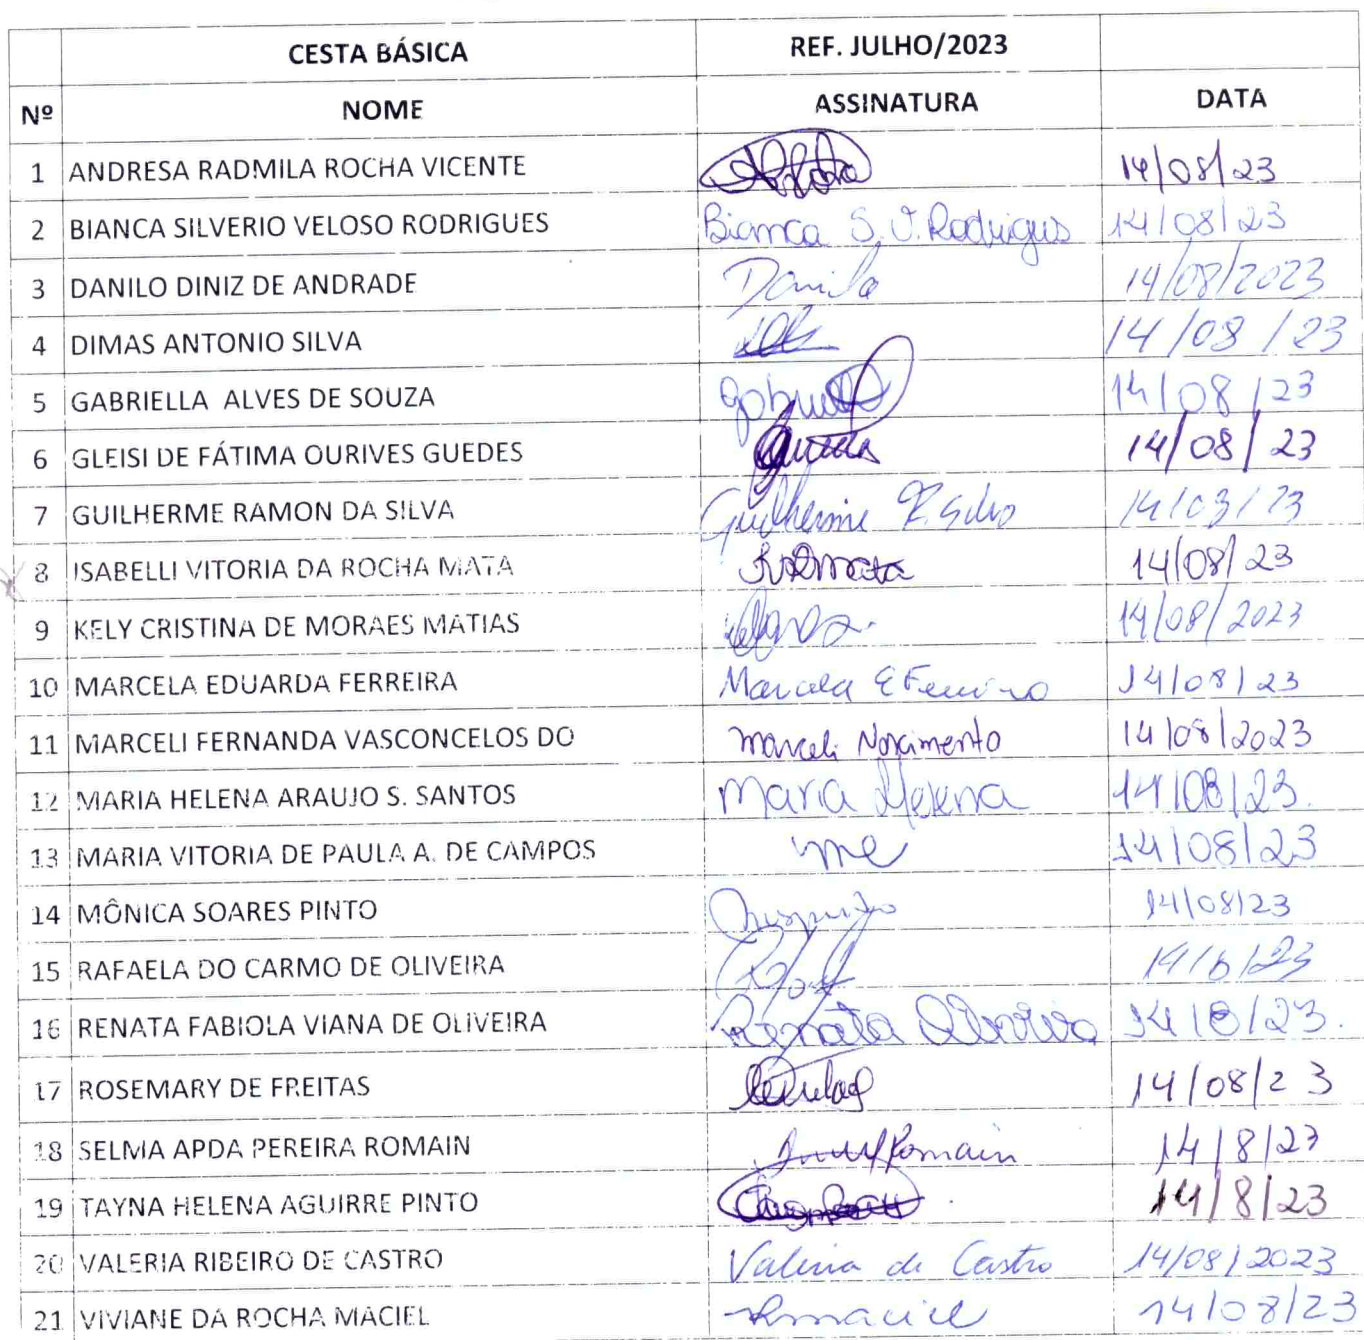 CESTA BÁSICA REF. JULHO/2023
Nº NOME ASSINATURA DATA
1 ANDRESA RADMILA ROCHA VICENTE 14/08/23
2 BIANCA SILVERIO VELOSO RODRIGUES Bianca S. V. Rodrigues 14/08/23
3 DANILO DINIZ DE ANDRADE Danilo 14/08/2023
4 DIMAS ANTONIO SILVA 14/08/23
5 GABRIELLA ALVES DE SOUZA 14/08/23
6 GLEISI DE FÁTIMA OURIVES GUEDES 14/08/23
7 GUILHERME RAMON DA SILVA Guilherme R. Silva 14/08/23
8 ISABELLI VITORIA DA ROCHA MATA 14/08/23
9 KELY CRISTINA DE MORAES MATIAS 14/08/2023
10 MARCELA EDUARDA FERREIRA Marcela E Ferreira 14/08/23
11 MARCELI FERNANDA VASCONCELOS DO Marceli Nascimento 14/08/2023
12 MARIA HELENA ARAUJO S. SANTOS Maria Helena 14/08/23.
13 MARIA VITORIA DE PAULA A. DE CAMPOS 14/08/23
14 MÔNICA SOARES PINTO 14/08/23
15 RAFAELA DO CARMO DE OLIVEIRA 14/8/23
16 RENATA FABIOLA VIANA DE OLIVEIRA Renata Oliveira 14/8/23.
17 ROSEMARY DE FREITAS 14/08/23
18 SELMA APDA PEREIRA ROMAIN Romain 14/8/23
19 TAYNA HELENA AGUIRRE PINTO 14/8/23
20 VALERIA RIBEIRO DE CASTRO Valeria de Castro 14/08/2023
21 VIVIANE DA ROCHA MACIEL 14/08/23